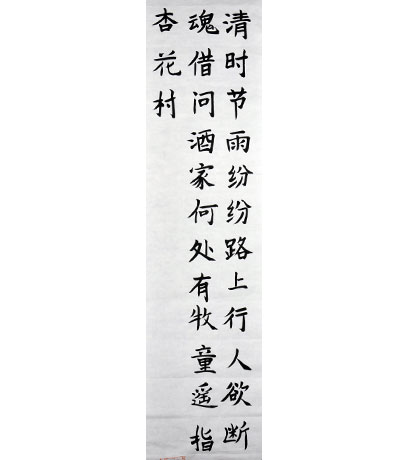 清时节雨纷纷路上行人欲断
魂借问酒家何处有牧童遥指
杏花村